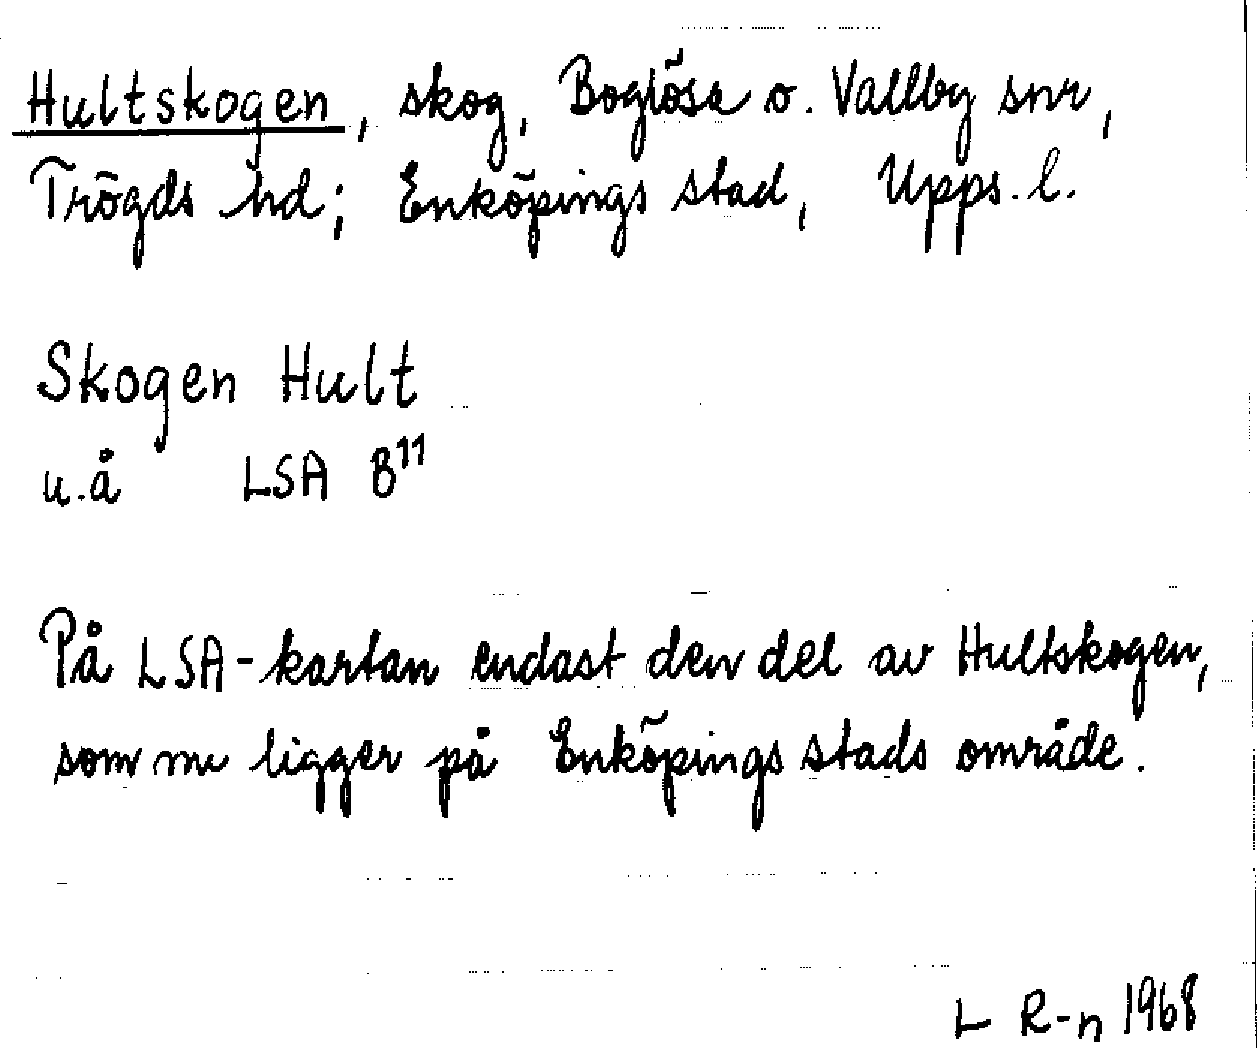 Hultskogen, skog, Boglösa o. Vallby snr,
Trögds hd; Enköpings stad, Upps. l.
Skogen Hult
u.å LSA B¹¹
På LSA-kartan endast den del av Hultskogen,
som nu ligger på Enköpings stads område.
L R-n 1968